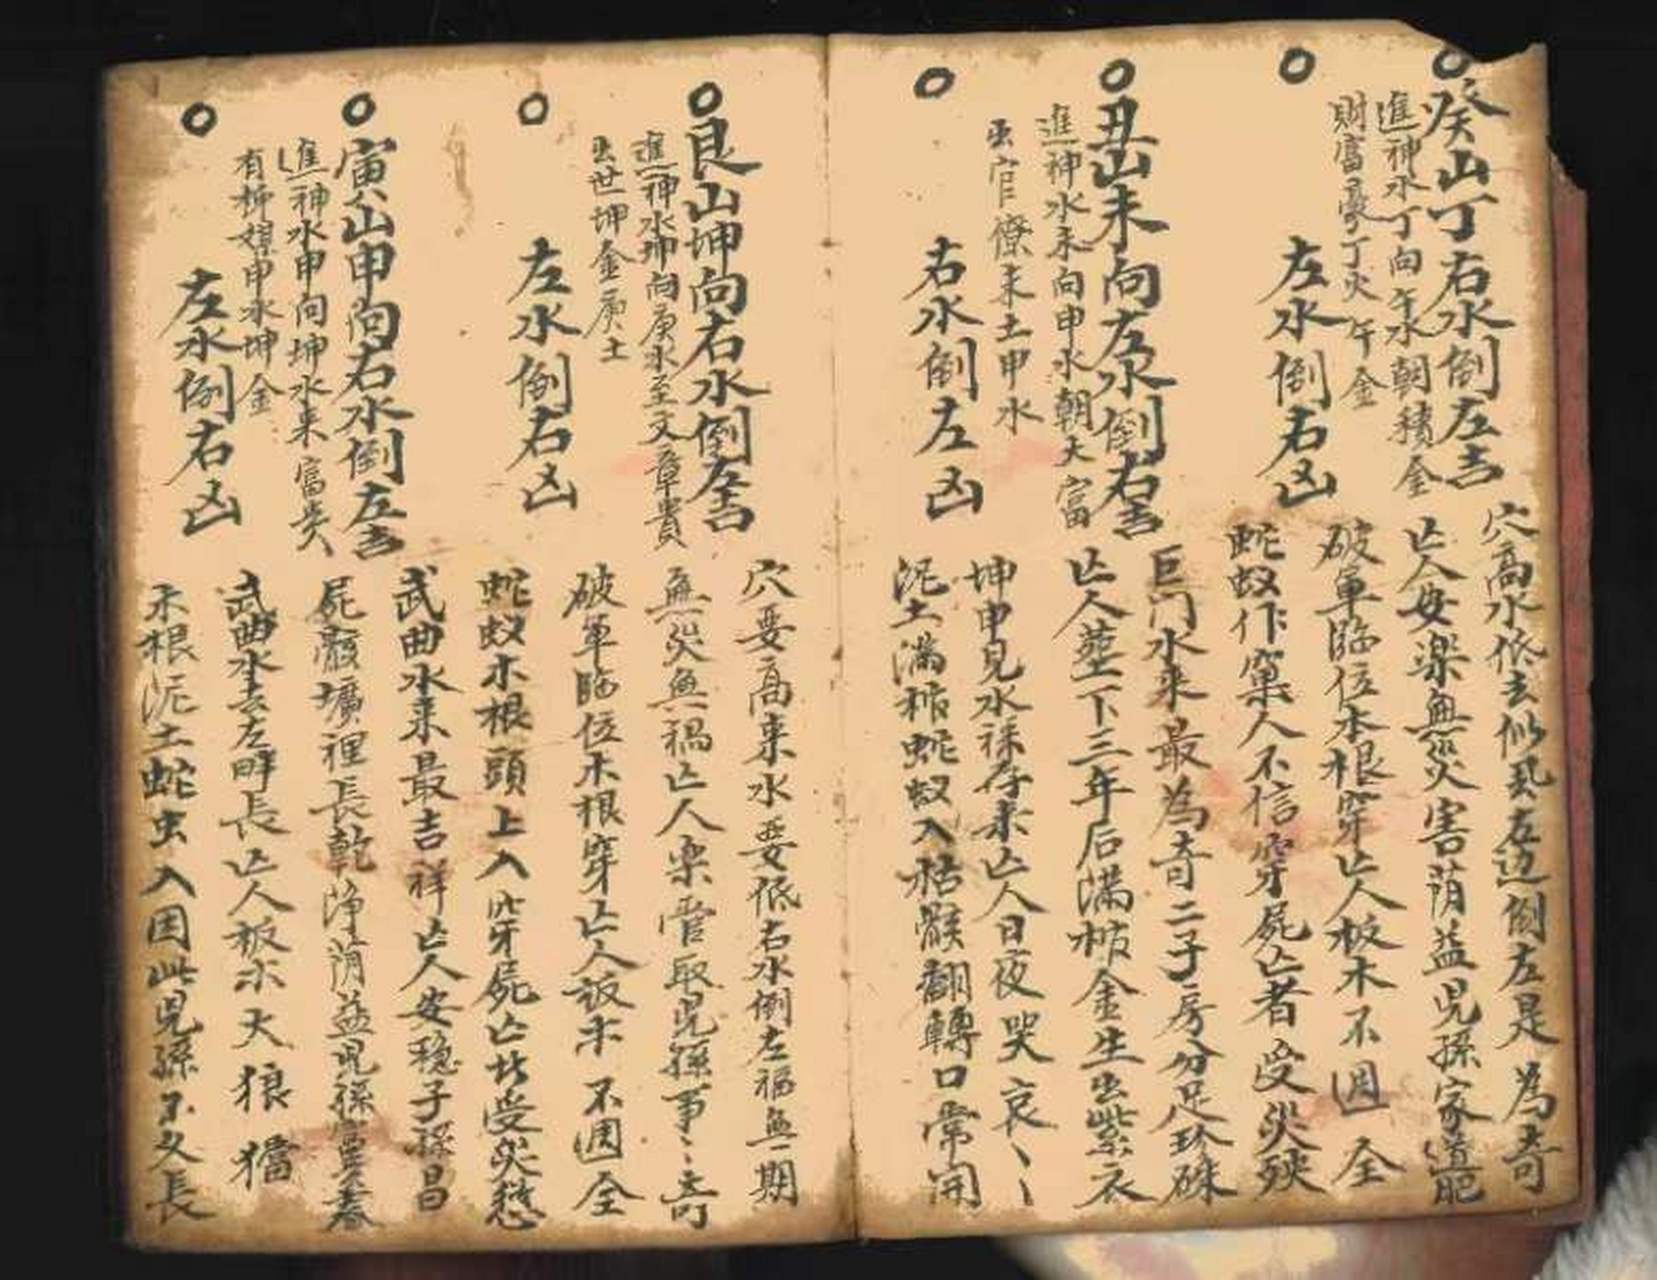 癸山丁右水倒左吉
進神水丁向午水朝積金
財富豪丁火午金
穴高水低去似風右边倒左是為奇
亡人安楽無災害荫益児孫家道肥
左水倒右凶
破軍臨位木根穿亡人板木不週全
蛇蚁作窠人不信穿屍亡者受災殃
丑山未向左水倒右吉
進神水未向申水朝大富
出官僚未土申水
巨門水来最為奇二子房分足珍硃
亡人葬下三年后满棺金生出紫衣
右水倒左凶
坤申見水禄存来亡人日夜哭哀丶丶
泥土满棺蛇蚁入骸翻轉口常開
艮山坤向右水倒左吉
進神水坤向庚水至文章貴
出世坤金庚土
穴要高来水要低右水倒左福無期
無災無禍亡人楽管取児孫事丶奇
左水倒右凶
破軍臨位木根穿亡人板木不週全
蛇蚁木根頭上入穿屍亡此受災愆
寅山申向右水倒左吉
進神水申向坤水来富貴
有申水坤金
武曲水来最吉祥亡人安穏子孫昌
屍骸壙裡長乾净荫益児孫富
左水倒右凶
武曲水去左畔長亡人板木大狼獕
木根泥土蛇虫入因此児孫不久長